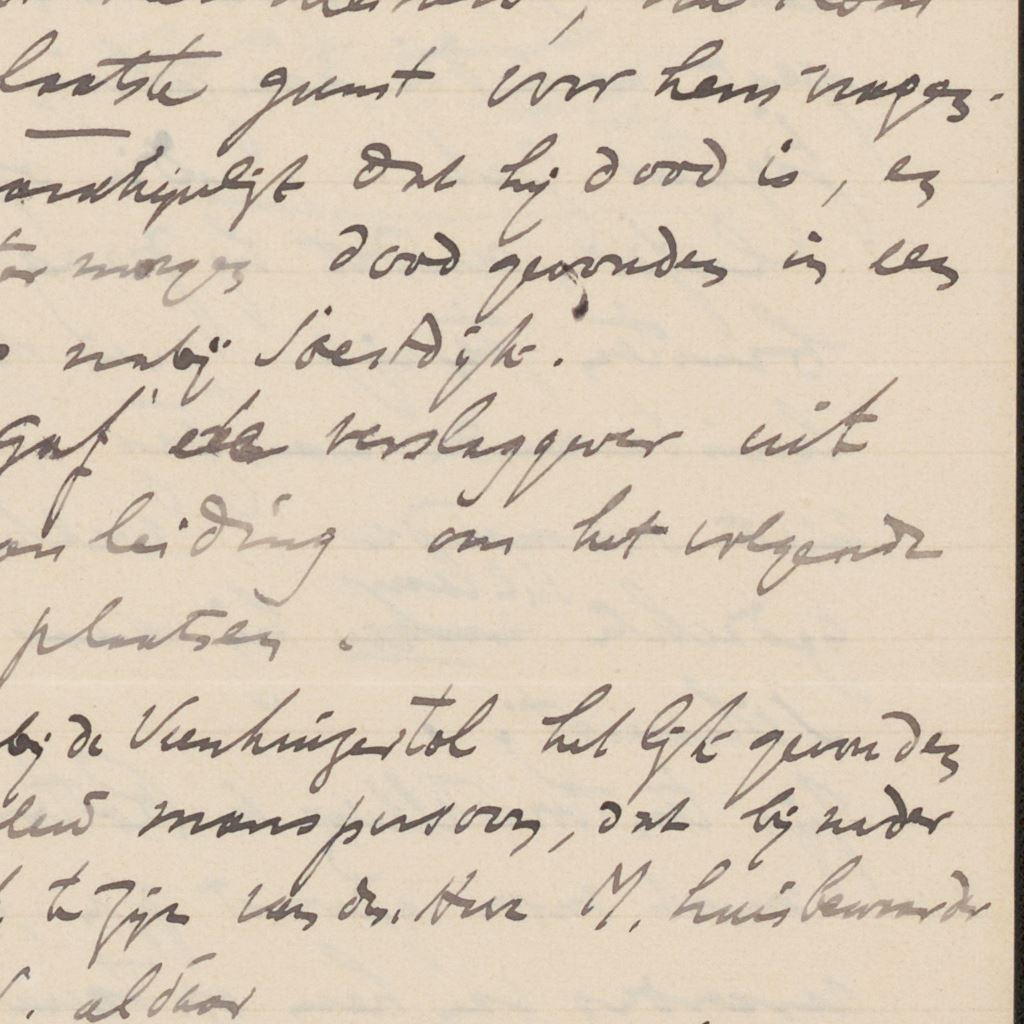 laatste gunst voor hem vragen.
dat hij dood is, en
morgen dood gevonden in een
nabij Soestdijk.
gaf de verslaggever uit
leiding om het volgende
plaatsen.
bij de Vuurschertol het lijk gevonden
manspersoon, dat bij nader
te zijn van den Heer M, huisbewaarder
aldaar